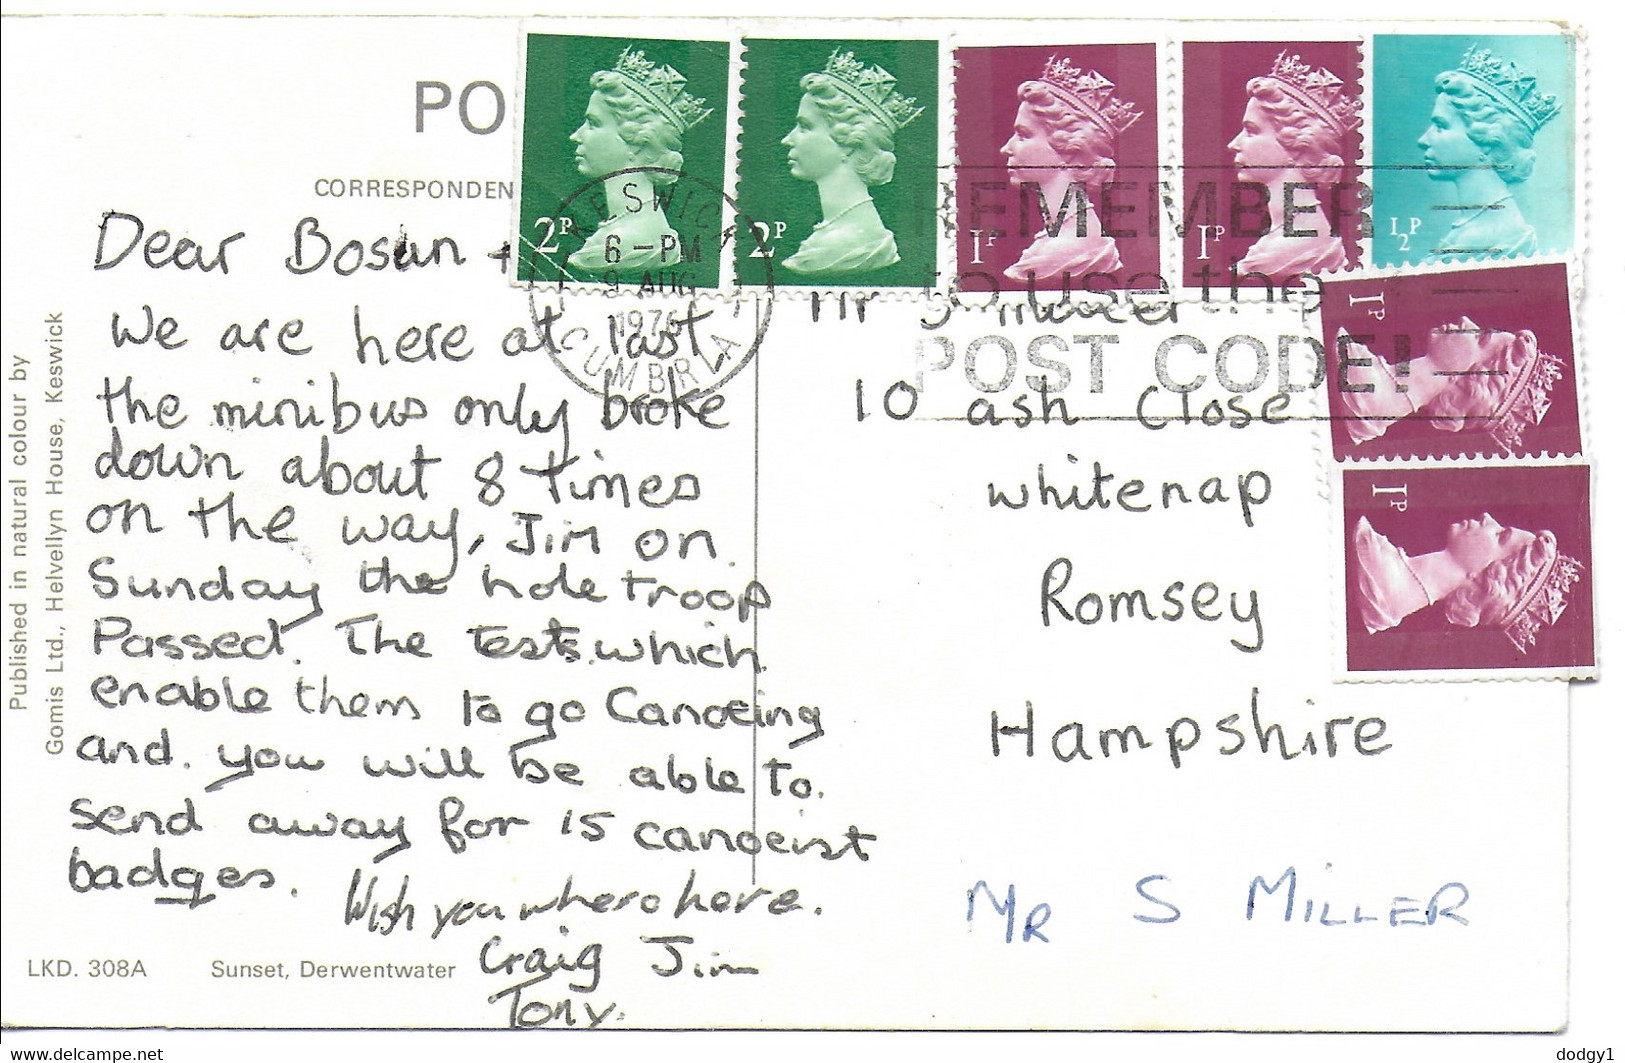 PO
CORRESPONDEN
2P
2P
1P
1P
½P
1P
1P
KESWICK
6 - PM
9 AUG
1976
CUMBRIA
REMEMBER
to use the
POST CODE!
Dear Bosun +
We are here at last
the minibus only broke
down about 8 times
on the way, Jim on
Sunday the hole troop
Passed. The tests. which
enable them to go Canoeing
and. you will be able to.
send away for 15 canoeist
badges.
Wish you where here.
Craig Jim
Tony.
Mr S Miller
10 ash Close
whitenap
Romsey
Hampshire
MR S MILLER
Published in natural colour by
Gomis Ltd., Helvellyn House, Keswick
LKD. 308A Sunset, Derwentwater
delcampe.net
dodgy1